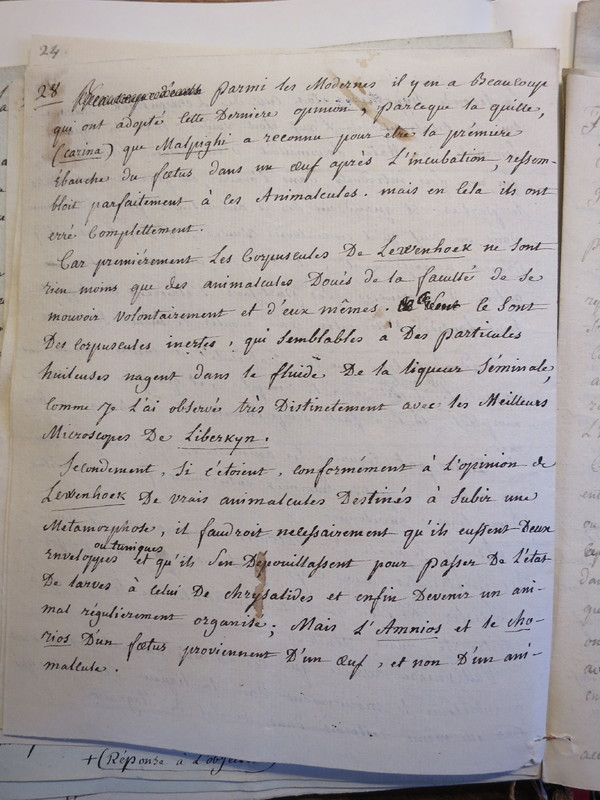 24
28 parmi les Modernes il y en a Beaucoup
qui ont adopté cette Derniere opinion, parceque la quille,
(carina) que Malpighi a reconnu pour etre la prémière
Ébauche du fœtus dans un œuf après L'incubation, ressem-
bloit parfaitement à ces Animalcules. mais en Cela ils ont
erré Complettement.
Car premiérement Les Corpuscules De Lewenhoek ne sont
rien moins que des animalcules Doués de la faculté de se
mouvoir volontairement et d'eux mêmes. Ce sont
Des corpuscules inertes, qui semblables à Des particules
huileuses nagent dans le fluide De la liqueur séminale,
comme je l'ai observé très Distinctement avec les Meilleurs
Microscopes De Liberkyn.
Secondement, si c'étoient, conformément à L'opinion de
Lewenhoek De vrais animalcules Destinés à subir une
Metamorphose, il faudroit necessairement qu'ils eussent Deux
ou tuniques
Enveloppes et qu'ils s'en Dépouillassent pour passer De l'état
De larves à Celui De chrysalides et enfin Devenir un ani-
mal régulièrement organisé; Mais L'Amnios et le cho-
rios D'un fœtus proviennent D'un œuf, et non D'un ani-
malcule.
+ (Réponse à L'obje